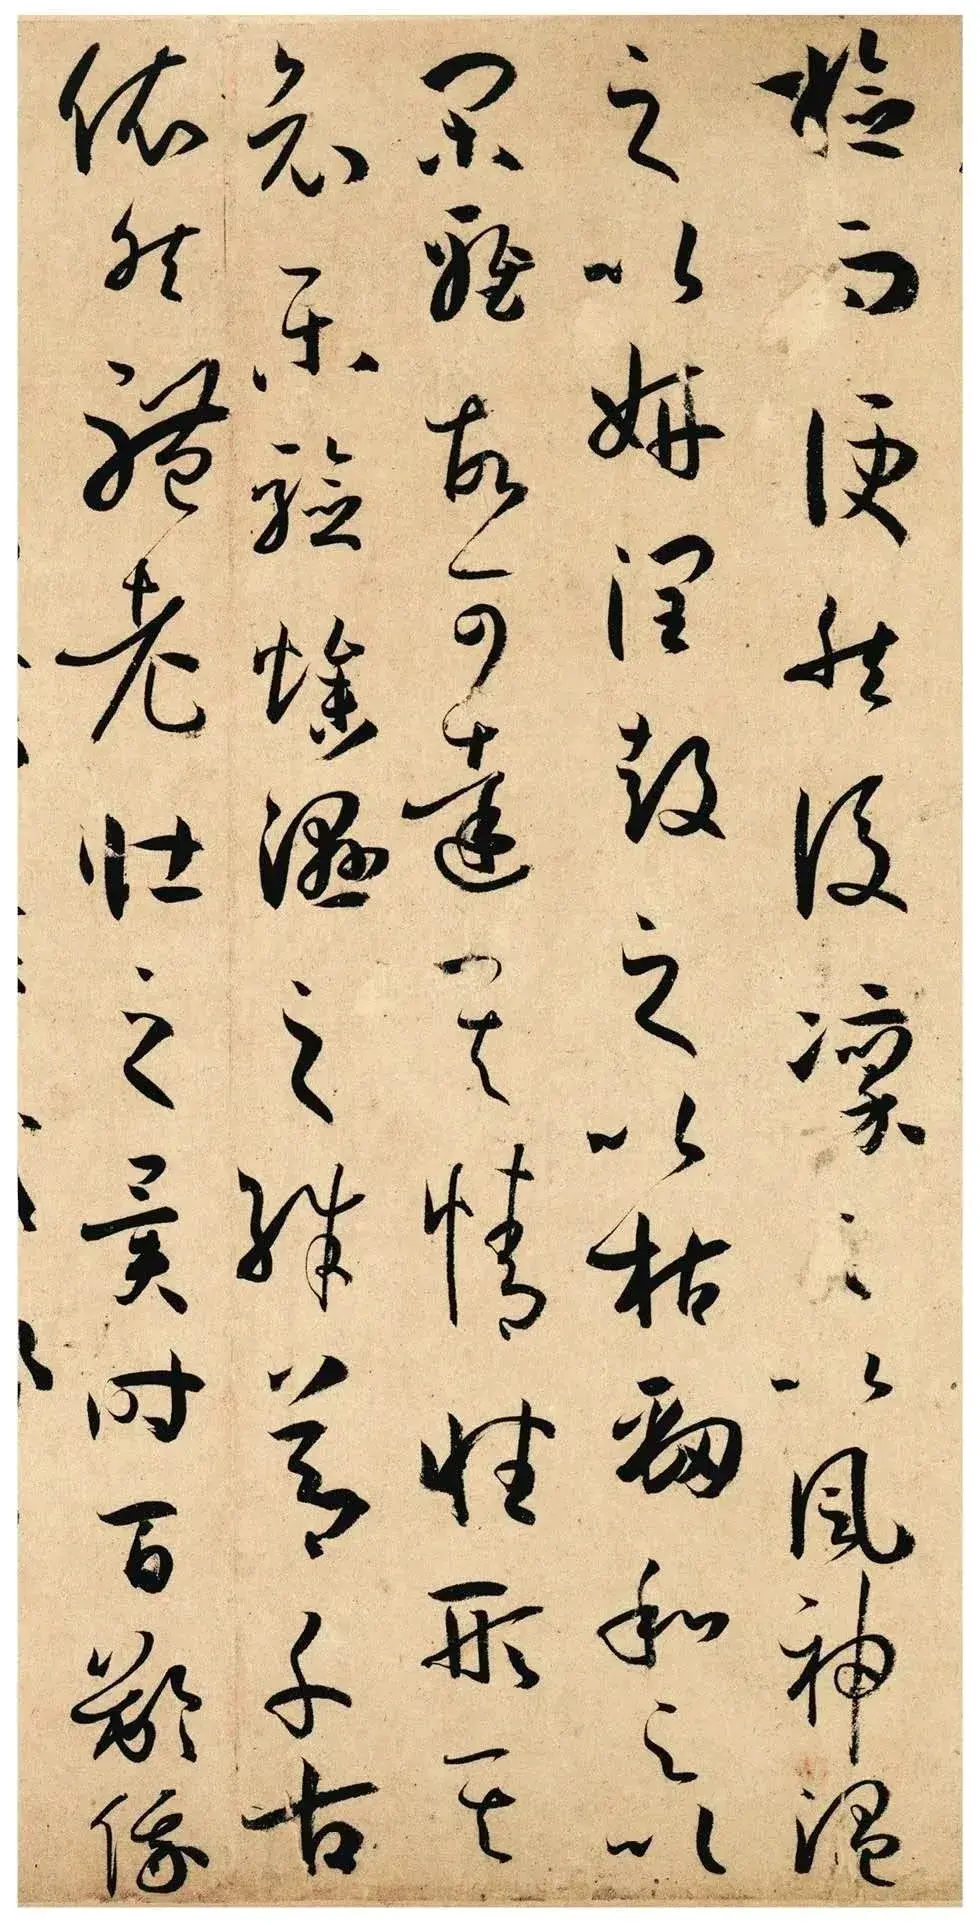 險而便然後凜之以風神溫
之以妍潤鼓之以枯勁和之以
閑雅故可達其情性形其
哀樂驗燥濕之殊節千古
依然體老壯之異時百齡俄